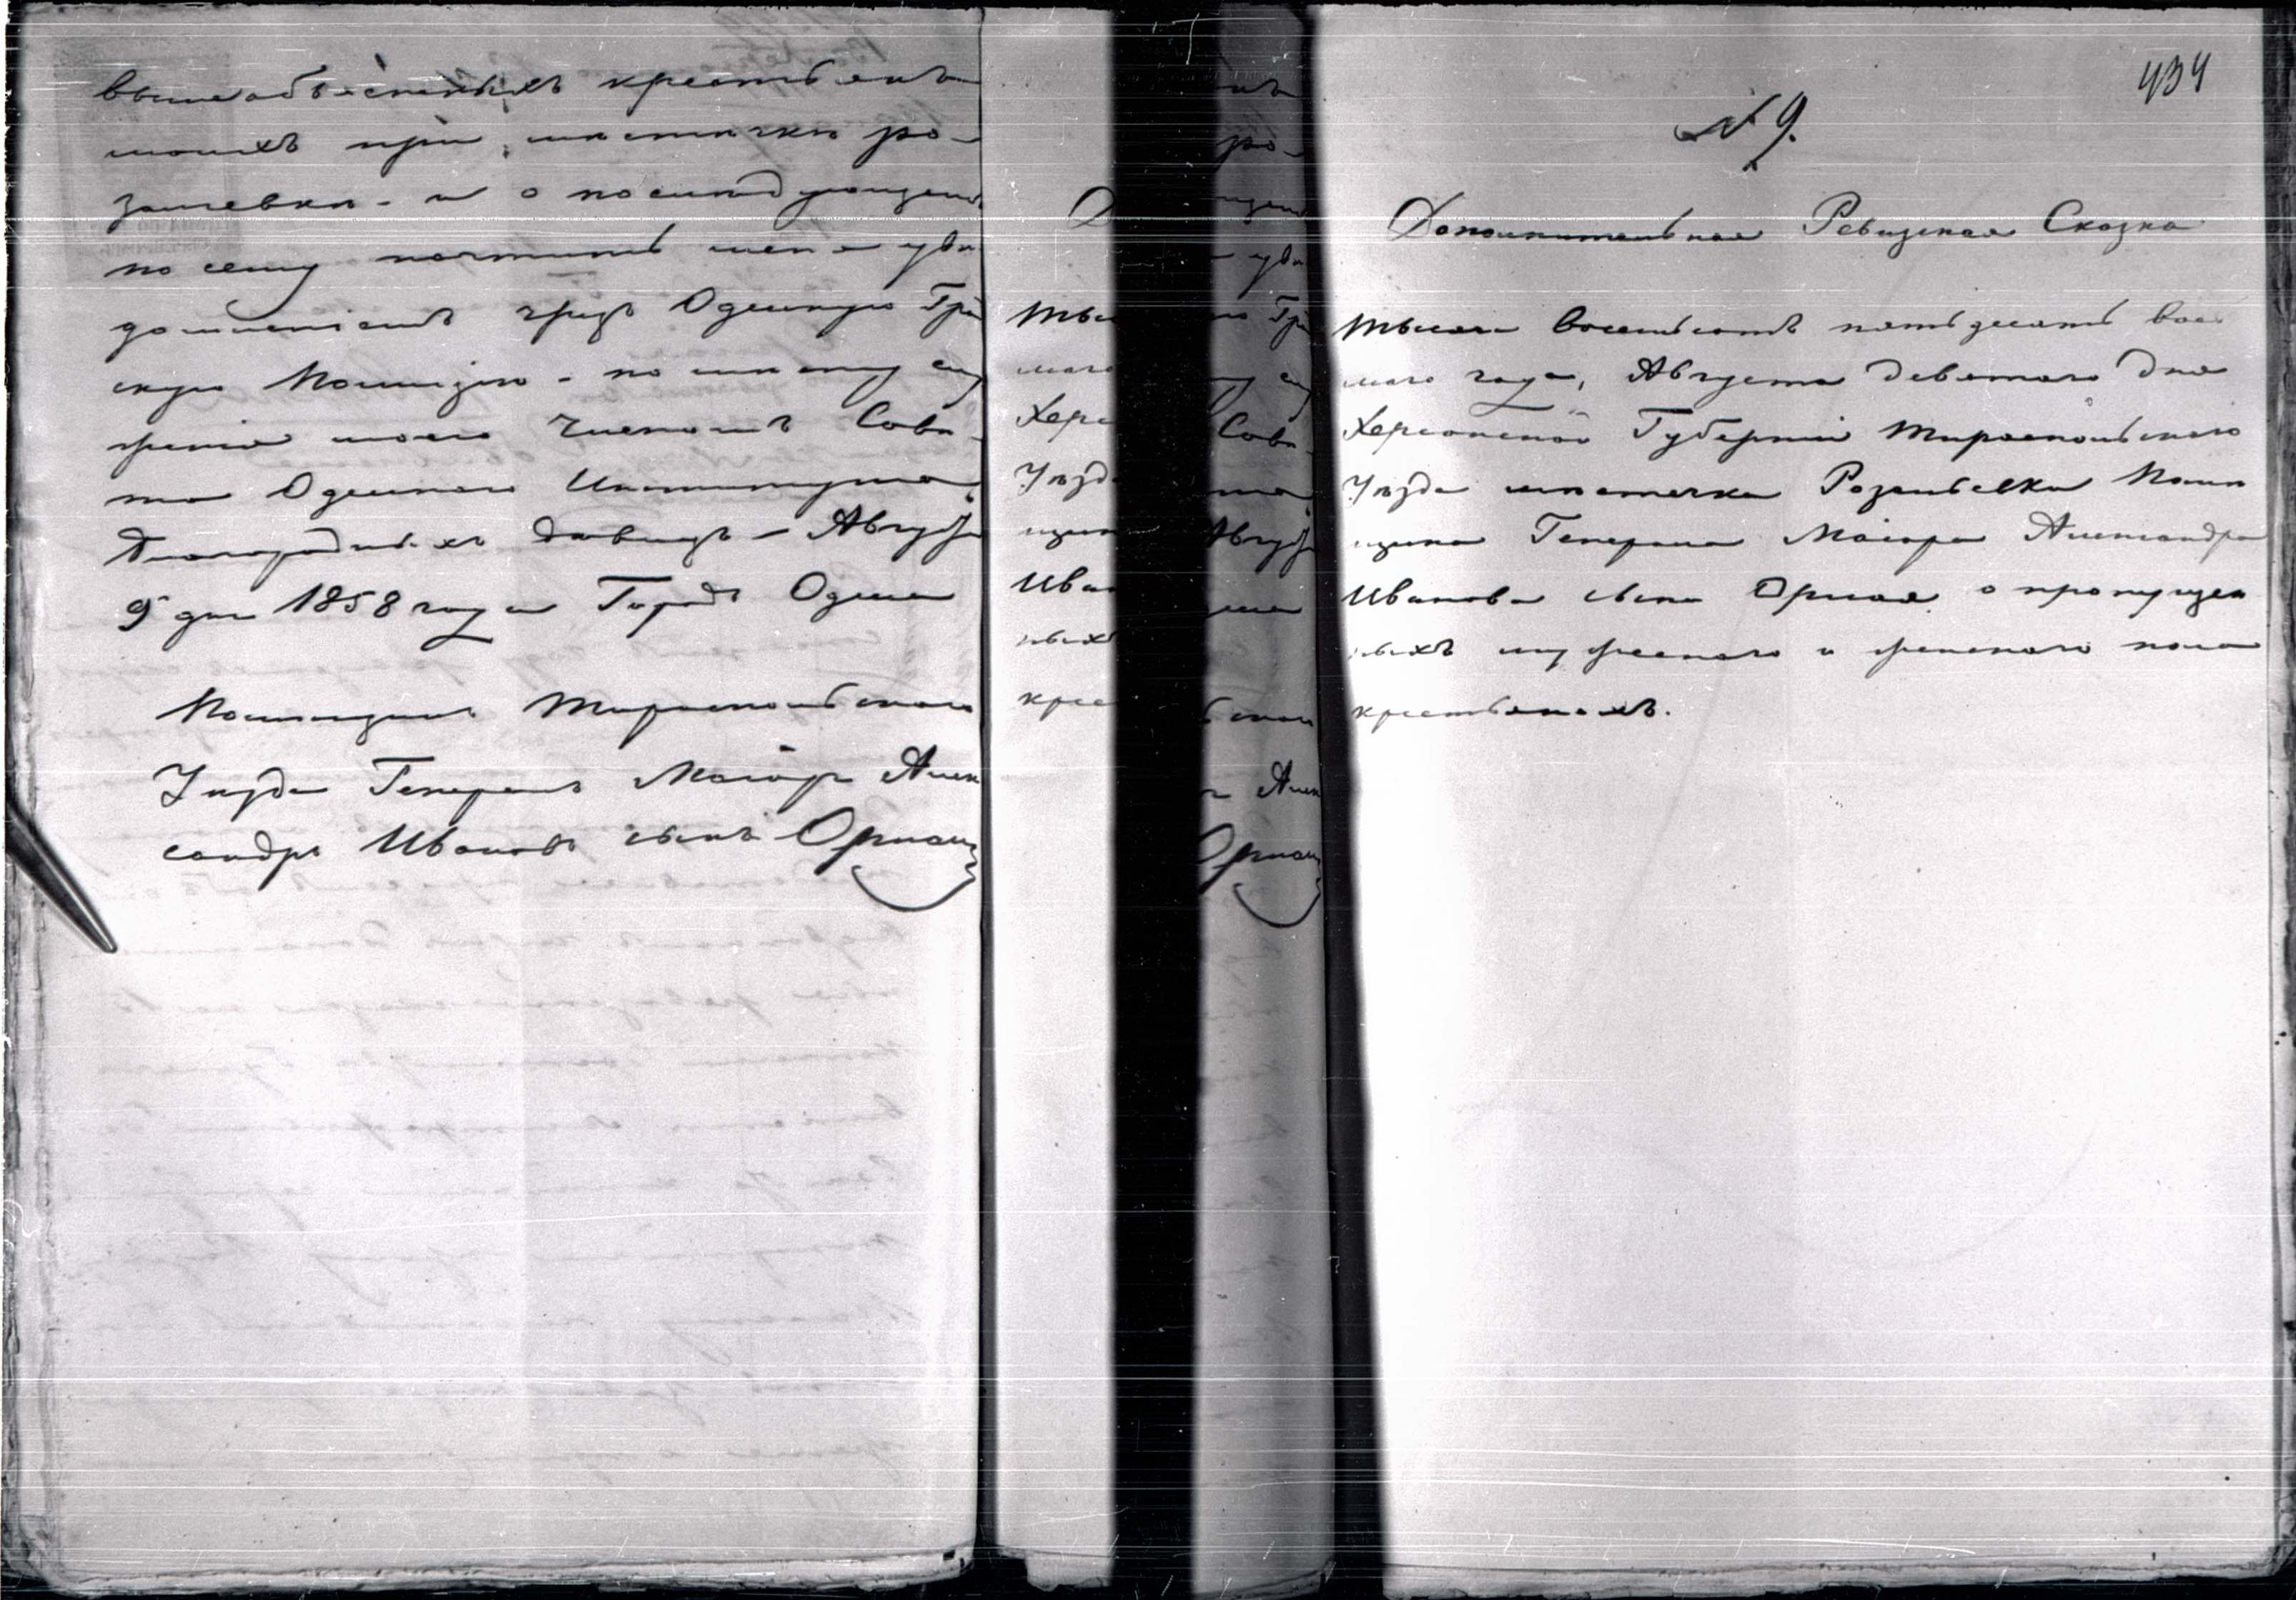 вышеобъясненныхъ крестьянъ
моихъ при мѣстечкѣ Ро-
залевкѣ - и о послѣдующемъ
по сему почтить меня увѣ
домленіемъ чрезъ Одесскую Гра
скую Полицію - по мѣсту слу
женія моего Членомъ Совѣ-
та Одескаго Института
Благородныхъ дѣвицъ - Августа
9 дня 1858 года Городъ Одесса
Помѣщикъ Тираспольскаго
Уѣзда Генералъ Маіоръ Алек
сандръ Ивановъ сынъ Орлай
434
N 9.
Дополнительная Ревизская Сказка
тысяча восемьсотъ пятьдесятъ вось
маго года, Августа девятаго дня
Херсонской Губерніи Тираспольскаго
Уѣзда мѣстечка Розальевки Помѣ
щика Генерала Маіора Александра
Иванова сына Орлая о пропущен
ныхъ мужескаго и женскаго пола
крестьянахъ.